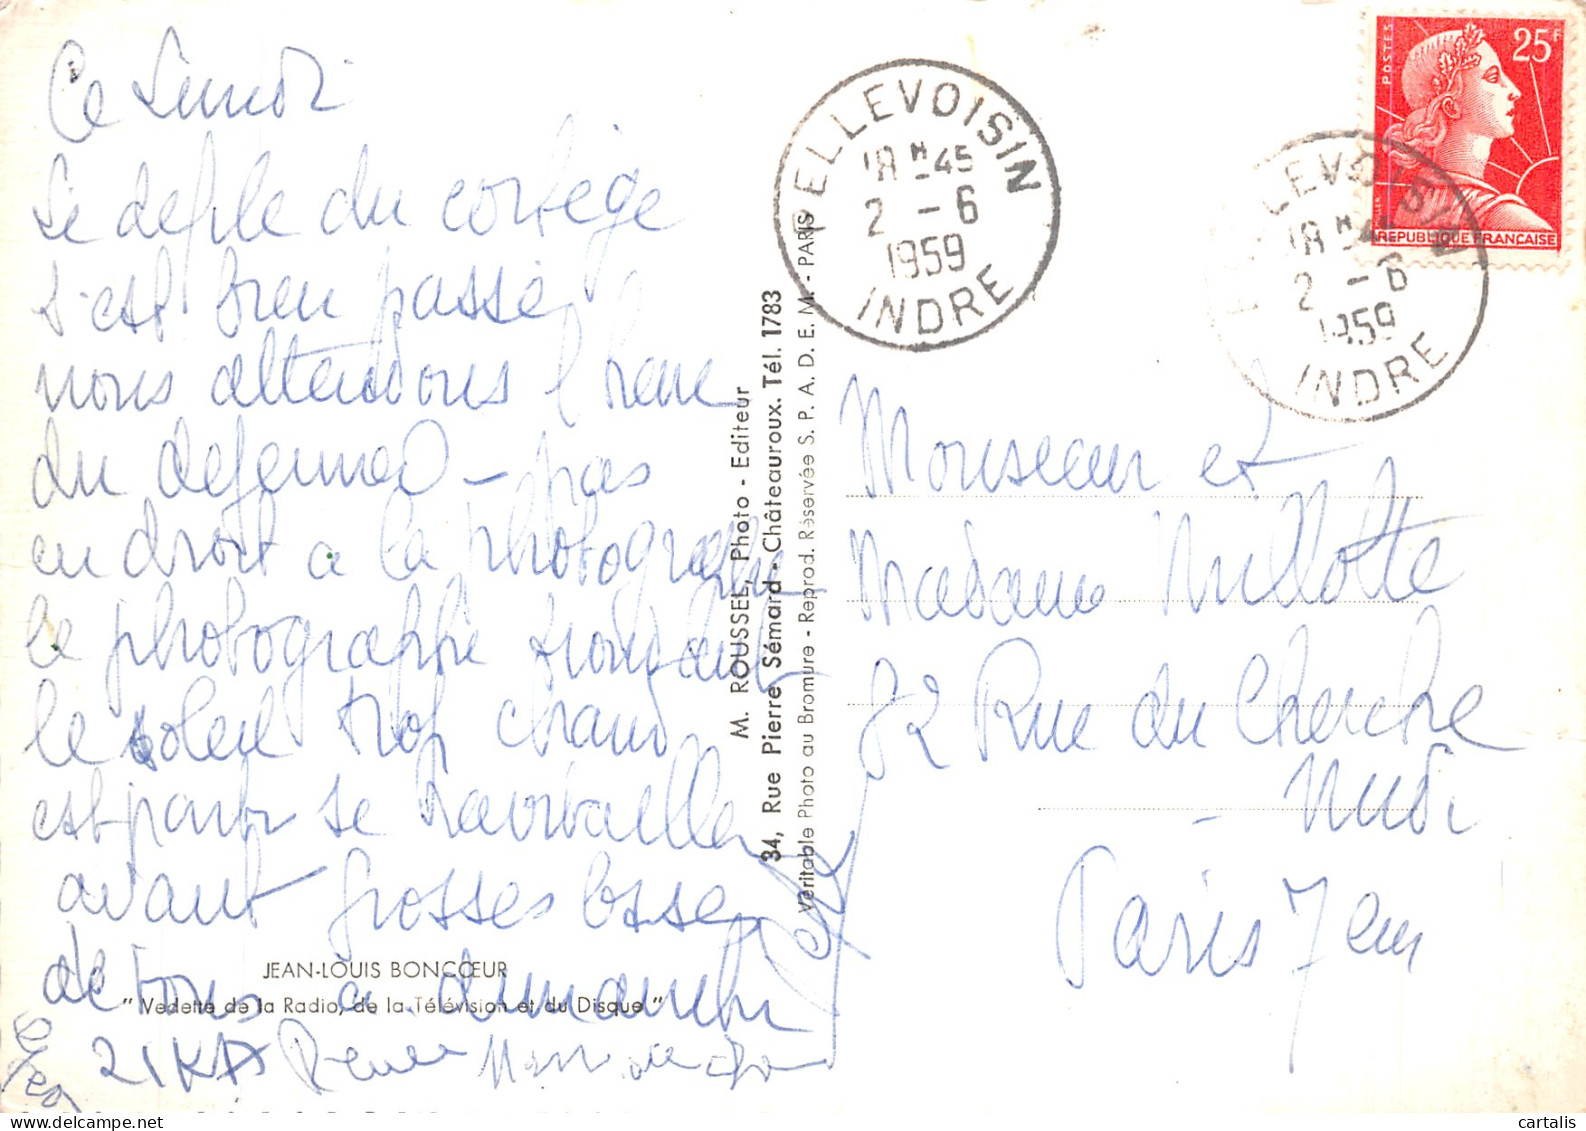 Ce Lundi
Le defile du cortège
s'est bien passé
nous attendons l'heure
du dejeuner - pas
eu droit a la photographie
le photographe
le soleil trop chaud
est parti se
avant grosses bises
de tous a dimanche
ZIKA Renée
JEAN-LOUIS BONCŒUR
" Vedette de la Radio, de la Télévision et du Disque "
M. ROUSSEL, Photo - Editeur
34, Rue Pierre Sémard - Châteauroux. Tél. 1783
Véritable Photo au Bromure - Reprod. Réservée S. P. A. D. E. M. - PARIS
PELLEVOISIN
18 H 45
2 - 6
1959
INDRE
PELLEVOISIN
18 H 45
2 - 6
1959
INDRE
POSTES
25F
REPUBLIQUE FRANÇAISE
Monsieur et
Madame Millotte
82 Rue du Cherche
- Midi
Paris 7 em
cartalis